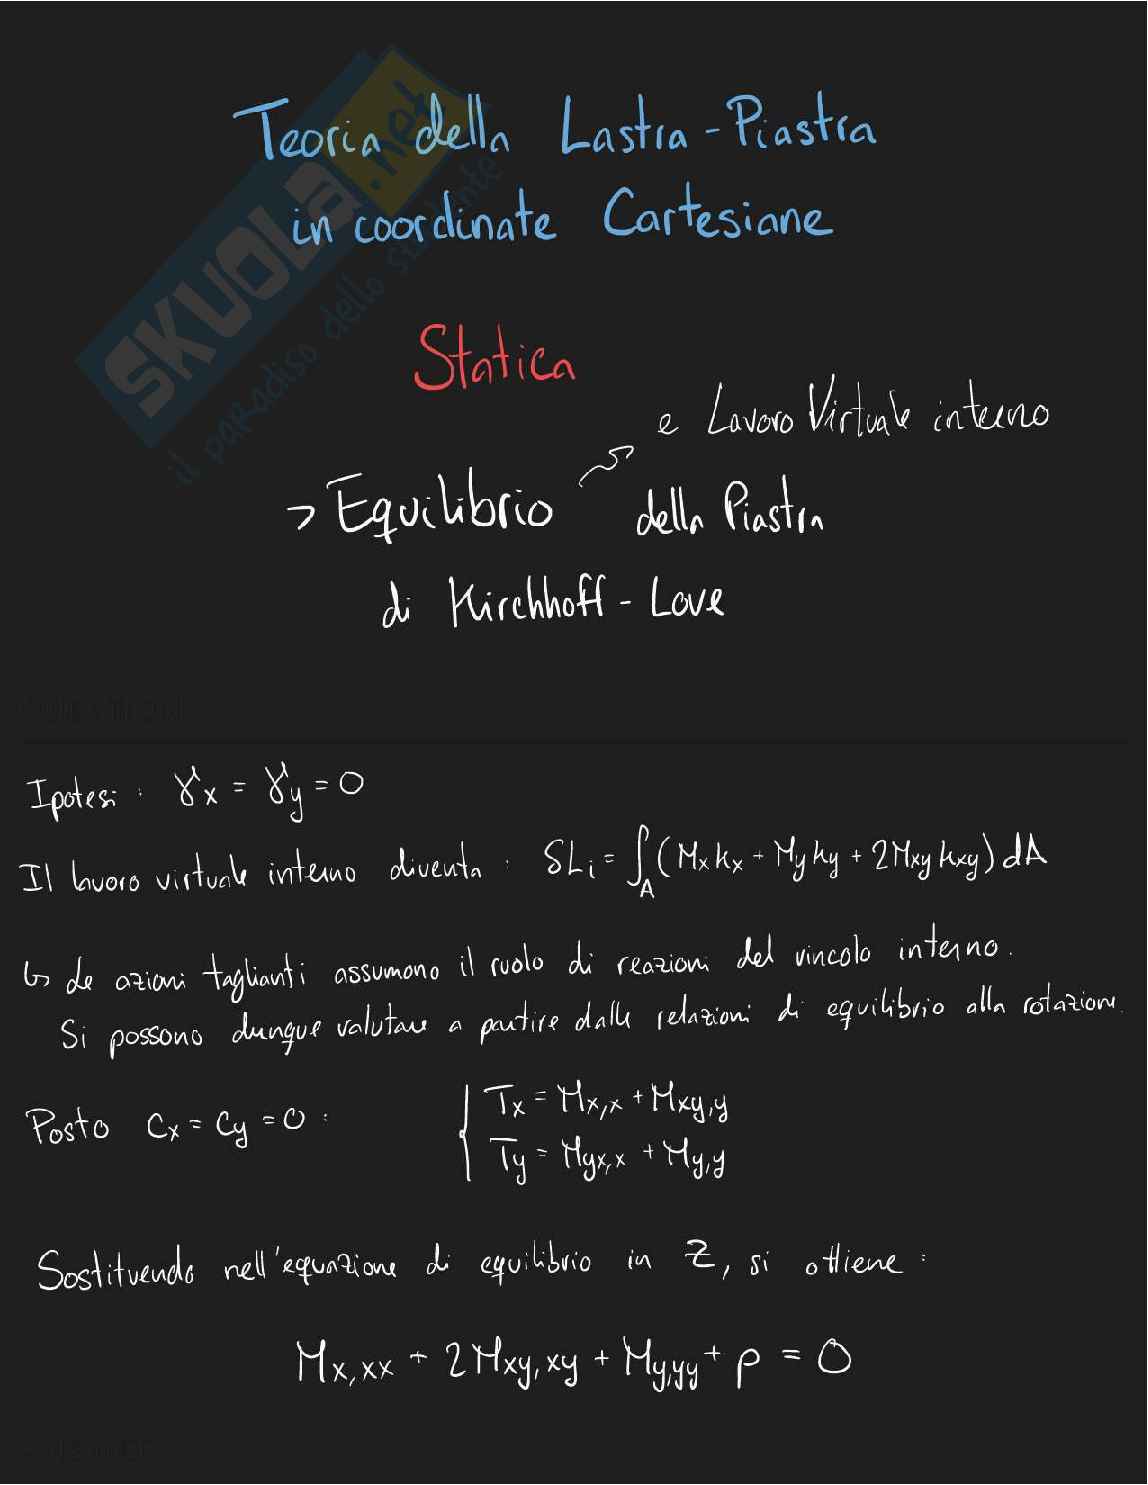 Teoria della Lastra-Piastra
in coordinate Cartesiane
SKUOLA.net
il paradiso dello studente
Statica
e Lavoro Virtuale interno
> Equilibrio della Piastra
di Kirchhoff - Love
Ipotesi: γx = γy = 0
Il lavoro virtuale interno diventa: δLi = ∫A (Mx kx + My ky + 2Mxy kxy) dA
↳ Le azioni taglianti assumono il ruolo di reazioni del vincolo interno.
Si possono dunque valutare a partire dalle relazioni di equilibrio alla rotazione.
Posto Cx = Cy = 0 : { Tx = Mx,x + Mxy,y
Ty = Myx,x + My,y
Sostituendo nell'equazione di equilibrio in z, si ottiene:
Mx,xx + 2Mxy,xy + My,yy + p = 0